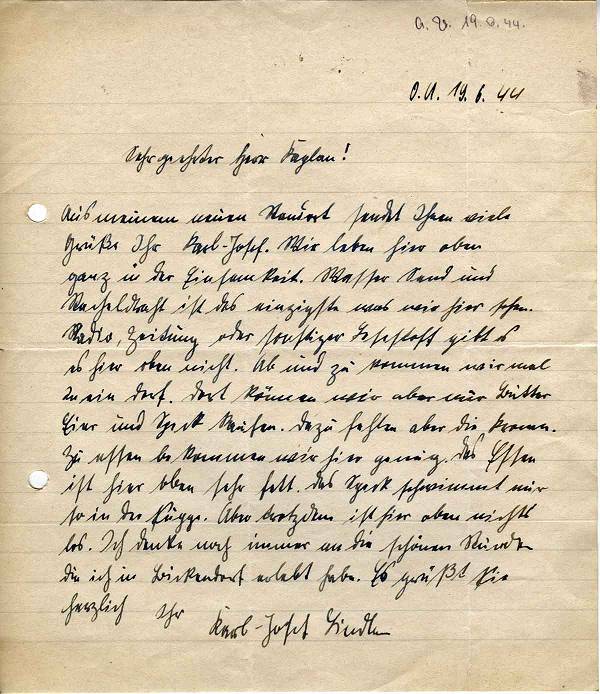 a. B. 19.6.44.
O.U. 19.6.44
Sehr geehrter Herr Kaplan!
Aus meinem neuen Standort sendet Ihnen viele
Grüße Ihr Karl-Josef. Wir leben hier oben
ganz in der Einsamkeit. Wasser Sand und
Stacheldraht ist das einzigste was wir hier sehen.
Radio, Zeitung oder sonstiger Lesestoff gibt es
es hier oben nicht. Ab und zu kommen wir mal
in ein Dorf. Dort können wir aber nur Butter
Eier und Speck kaufen. Dazu fehlen aber die Kronen.
Zu essen bekommen wir hier genug. Das Essen
ist hier oben sehr fett. Das Speck schwimmt nur
so in der Suppe. Aber trotzdem ist hier oben nichts
los. Ich denke noch immer an die schönen Stunden
die ich in Bickendorf erlebt habe. Es grüßt Sie
herzlich Ihr
Karl-Josef